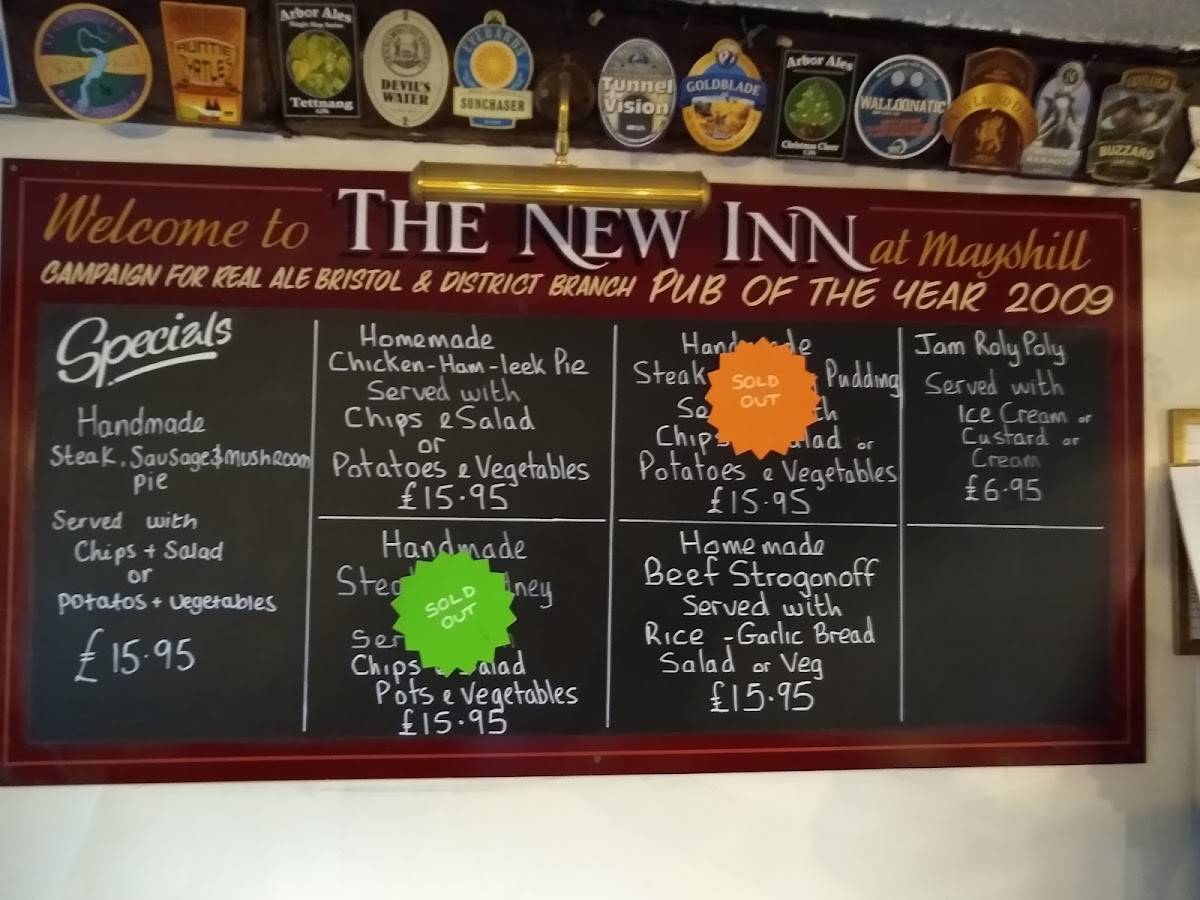 AUNTIE
MYRTLES
Arbor Ales
Single Hop Series
Tettnang
DEVIL'S
WATER
EVERARDS
SUNCHASER
Tunnel
Vision
GOLDBLADE
Arbor Ales
Christmas Cheer
WALLOONATIC
MAMMOTH
BUZZARD
Welcome to THE NEW INN at Mayshill
CAMPAIGN FOR REAL ALE BRISTOL & DISTRICT BRANCH PUB OF THE YEAR 2009
Specials
Handmade
Steak, Sausage & Mushroom
Pie
Served with
Chips + Salad
or
Potatos + Vegetables
£15.95
Homemade
Chicken-Ham-leek Pie
Served with
Chips & Salad
or
Potatoes & Vegetables
£15.95
Handmade
SOLD
OUT
Chips
Pots & Vegetables
£15.95
Steak Pudding
SOLD
OUT
Chips or
Potatoes & Vegetables
£15.95
Homemade
Beef Strogonoff
Served with
Rice - Garlic Bread
Salad or Veg
£15.95
Jam Roly Poly
Served with
Ice Cream or
Custard or
Cream
£6.95